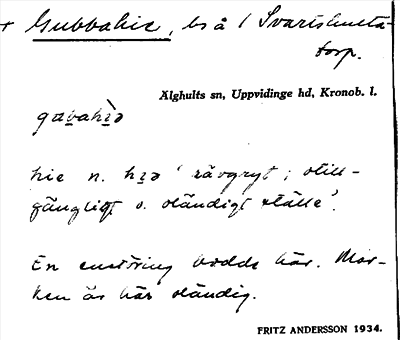 + Gubbahie, bs å 1 Svartshulta-
torp.
Älghults sn, Uppvidinge hd, Kronob. l.
gɑʋahɪ̀ə
hie n. hɪə 'rävgryt; otill-
gängligt o. oländigt ställe'.
En enstöring bodde här. Mar-
ken är här oländig.
FRITZ ANDERSSON 1934.